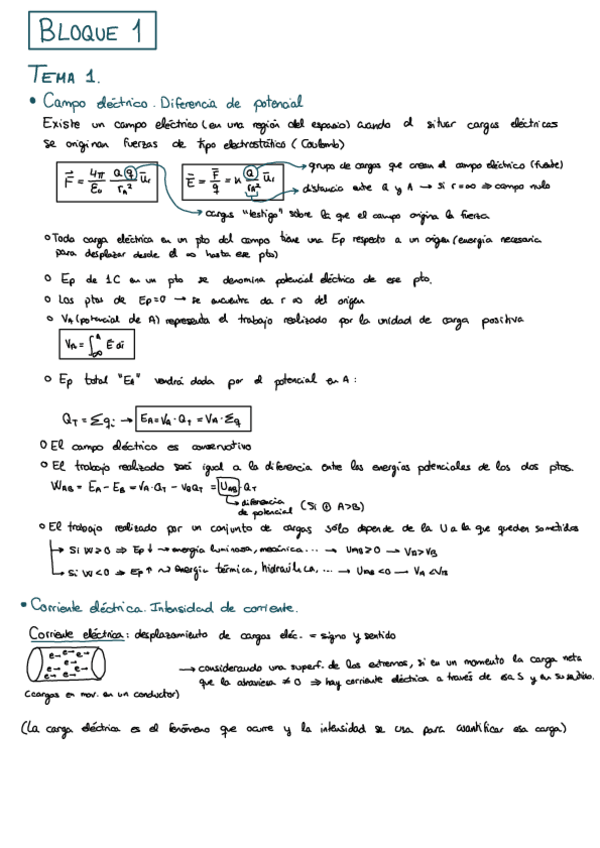 BLOQUE 1
TEMA 1.
• Campo eléctrico. Diferencia de potencial
Existe un campo eléctrico (en una región del espacio) cuando al situar cargas eléctricas
se originan fuerzas de tipo electrostático (Coulomb)
F = 4π/ε₀ Q q/r_A² ū_r
E = F/q = k Q/r_A² ū_r
→ grupo de cargas que crean el campo eléctrico (fuente)
→ distancia entre Q y A → si r=∞ ⇒ campo nulo
→ cargas "testigo" sobre la que el campo origina la fuerza
o Toda carga eléctrica en un pto del campo tiene una Ep respecto a un origen (energía necesaria
para desplazar desde el ∞ hasta ese pto)
o Ep de 1C en un pto se denomina potencial eléctrico de ese pto.
o Los ptos de Ep=0 → se encuentra a r ∞ del origen
o V_A (potencial de A) representa el trabajo realizado por la unidad de carga positiva
V_A = ∫_∞^A Ē dl̄
o Ep total "E_A" vendrá dada por el potencial en A:
Q_T = Σq_i → E_A = V_A · Q_T = V_A · Σq
o El campo eléctrico es conservativo
o El trabajo realizado será igual a la diferencia entre las energías potenciales de los dos ptos.
W_AB = E_A - E_B = V_A · Q_T - V_B Q_T = U_AB · Q_T
→ diferencia de potencial (Si ⊕ A>B)
o El trabajo realizado por un conjunto de cargas sólo depende de la U a la que queden sometidas
→ Si W>0 ⇒ Ep↓ → energía luminosa, mecánica... → U_AB>0 → V_A>V_B
→ Si W<0 ⇒ Ep↑ → energía térmica, hidraúlica,... → U_AB<0 → V_A<V_B
• Corriente eléctrica. Intensidad de corriente.
Corriente eléctrica: desplazamiento de cargas eléc. = signo y sentido
e→ e→ e→
e→ e→
e→ e→ e→
→ considerando una superf. de los extremos, si en un momento la carga neta
que la atraviesa ≠ 0 ⇒ hay corriente eléctrica a través de esa S y en su sentido.
(cargas en mov. en un conductor)
(La carga eléctrica es el fenómeno que ocurre y la intensidad se usa para cuantificar esa carga)